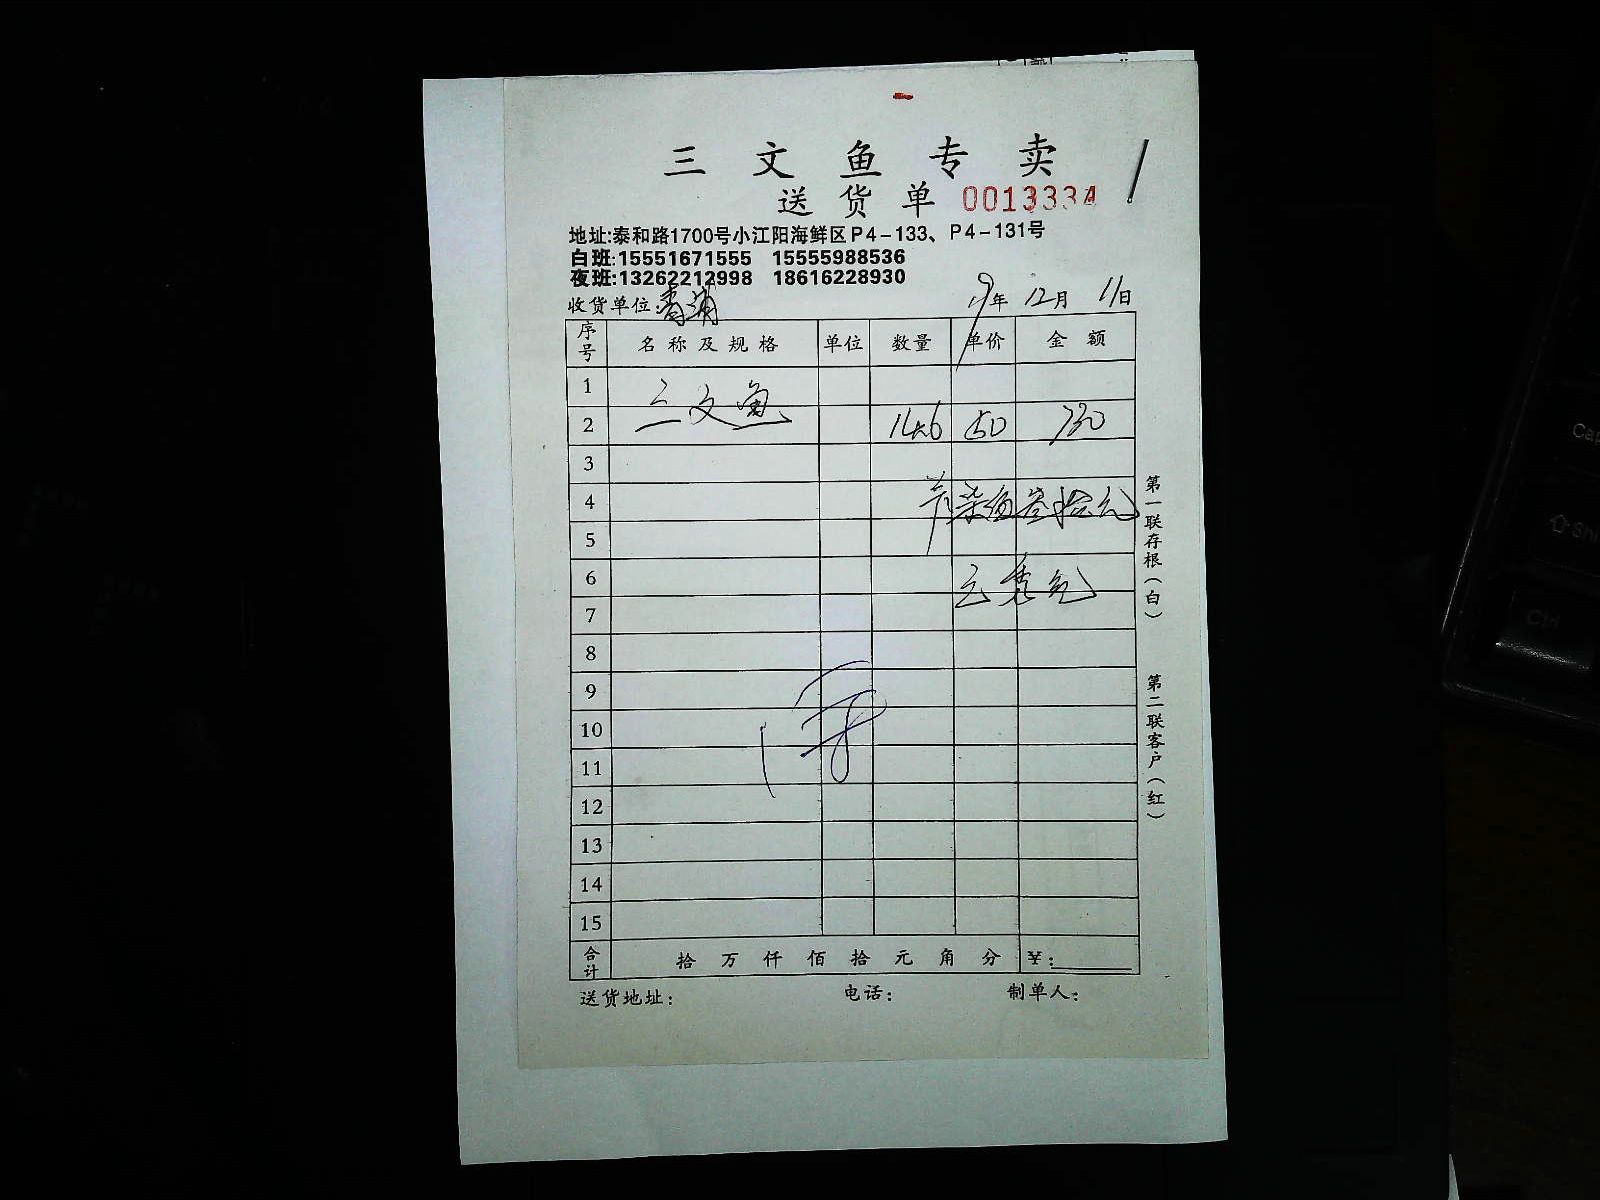 三文鱼专卖
送货单 0013334
地址:泰和路1700号小江阳海鲜区P4-133、P4-131号
白班:15551671555 15555988536
夜班:13262212998 18616228930
收货单位:青浦 19年 12月 11日
序号 名称及规格 单位 数量 单价 金额
1 三文鱼
2 14.6 50 730
3
4 柒佰叁拾元
5
6
7
8
9
10
11
12
13
14
15
合计 拾 万 仟 佰 拾 元 角 分 ¥:
送货地址: 电话: 制单人:
第一联存根(白)
第二联客户(红)